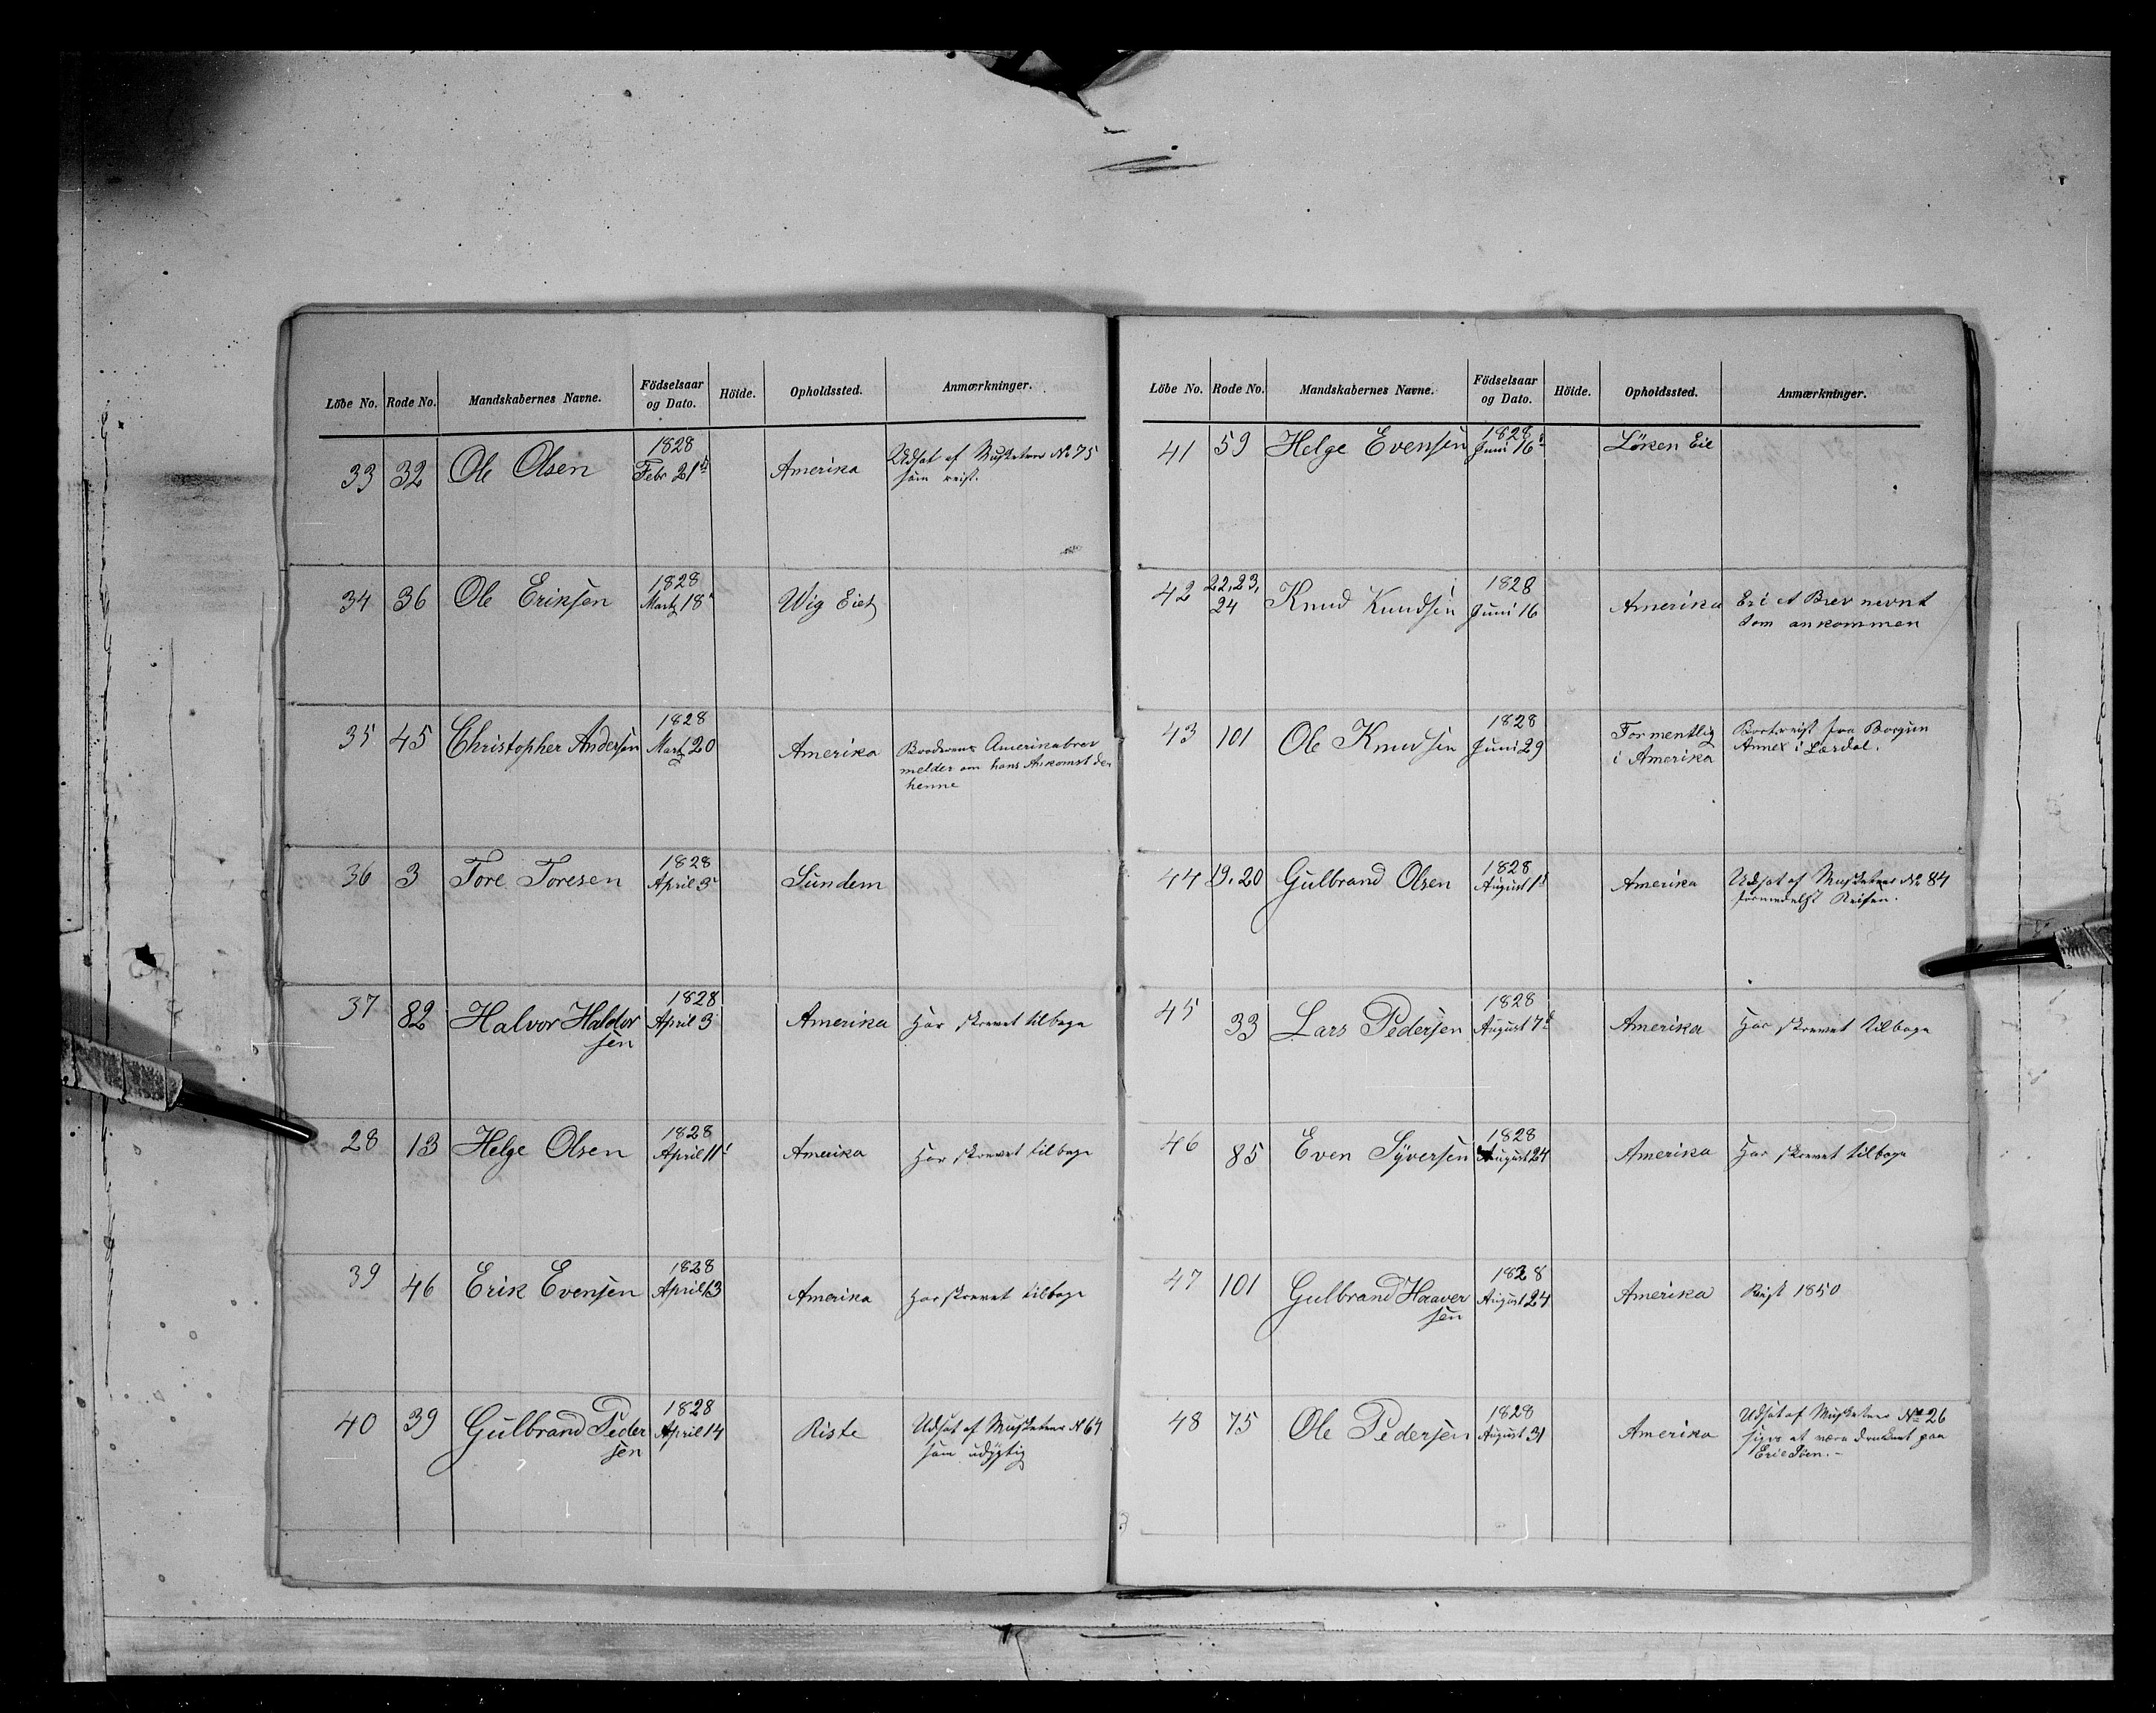 Löbe No. Rode No. Mandskabernes Navne. Födselsaar og Dato. Höide. Opholdssted. Anmærkninger.
33 32 Ole Olsen 1828 Febr 21d Amerika Udsat af Musketeer No 75
som reist.
34 36 Ole Eriksen 1828 Marts 18 Wig Eiet
35 45 Christopher Andersen 1828 Marts 20 Amerika Broderens Amerikabrev
melder om hans Ankomst der
henne
36 3 Tore Toresen 1828 April 3 Sundem
37 82 Halvor Haldor
sen 1828 April 3 Amerika Har skrevet tilbage
28 13 Helge Olsen 1828 April 11 Amerika Har skrevet tilbage
39 46 Erik Evensen 1828 April 13 Amerika Har skrevet tilbage
40 39 Gulbrand Peder
sen 1828 April 14 Riste Udsat af Musketeer N 64
som udygtig
Löbe No. Rode No. Mandskabernes Navne. Födselsaar og Dato. Höide. Opholdssted. Anmærkninger.
41 59 Helge Evensen 1828 Juni 16 Löken Eie
42 22, 23,
24 Knud Knudsen 1828 Juni 16 Amerika Er i et Brev nevnt
som ankommen
43 101 Ole Knudsen 1828 Juni 29 Formentlig
i Amerika Bortreist fra Borgun
Annex i Lærdal.
44 19, 20 Gulbrand Olsen 1828 August 1d Amerika Udsat af Musketeer No 84
formedelst Reisen.
45 33 Lars Pedersen 1828 August 7d Amerika Har skrevet tilbage
46 85 Even Syversen 1828 August 24 Amerika Har skrevet tilbage
47 101 Gulbrand Haaver
sen 1828 August 24 Amerika Reist 1850
48 75 Ole Pedersen 1828 August 31 Amerika Udsat af Musketeer No 26
siges at være druknet paa
Erie Söen.-